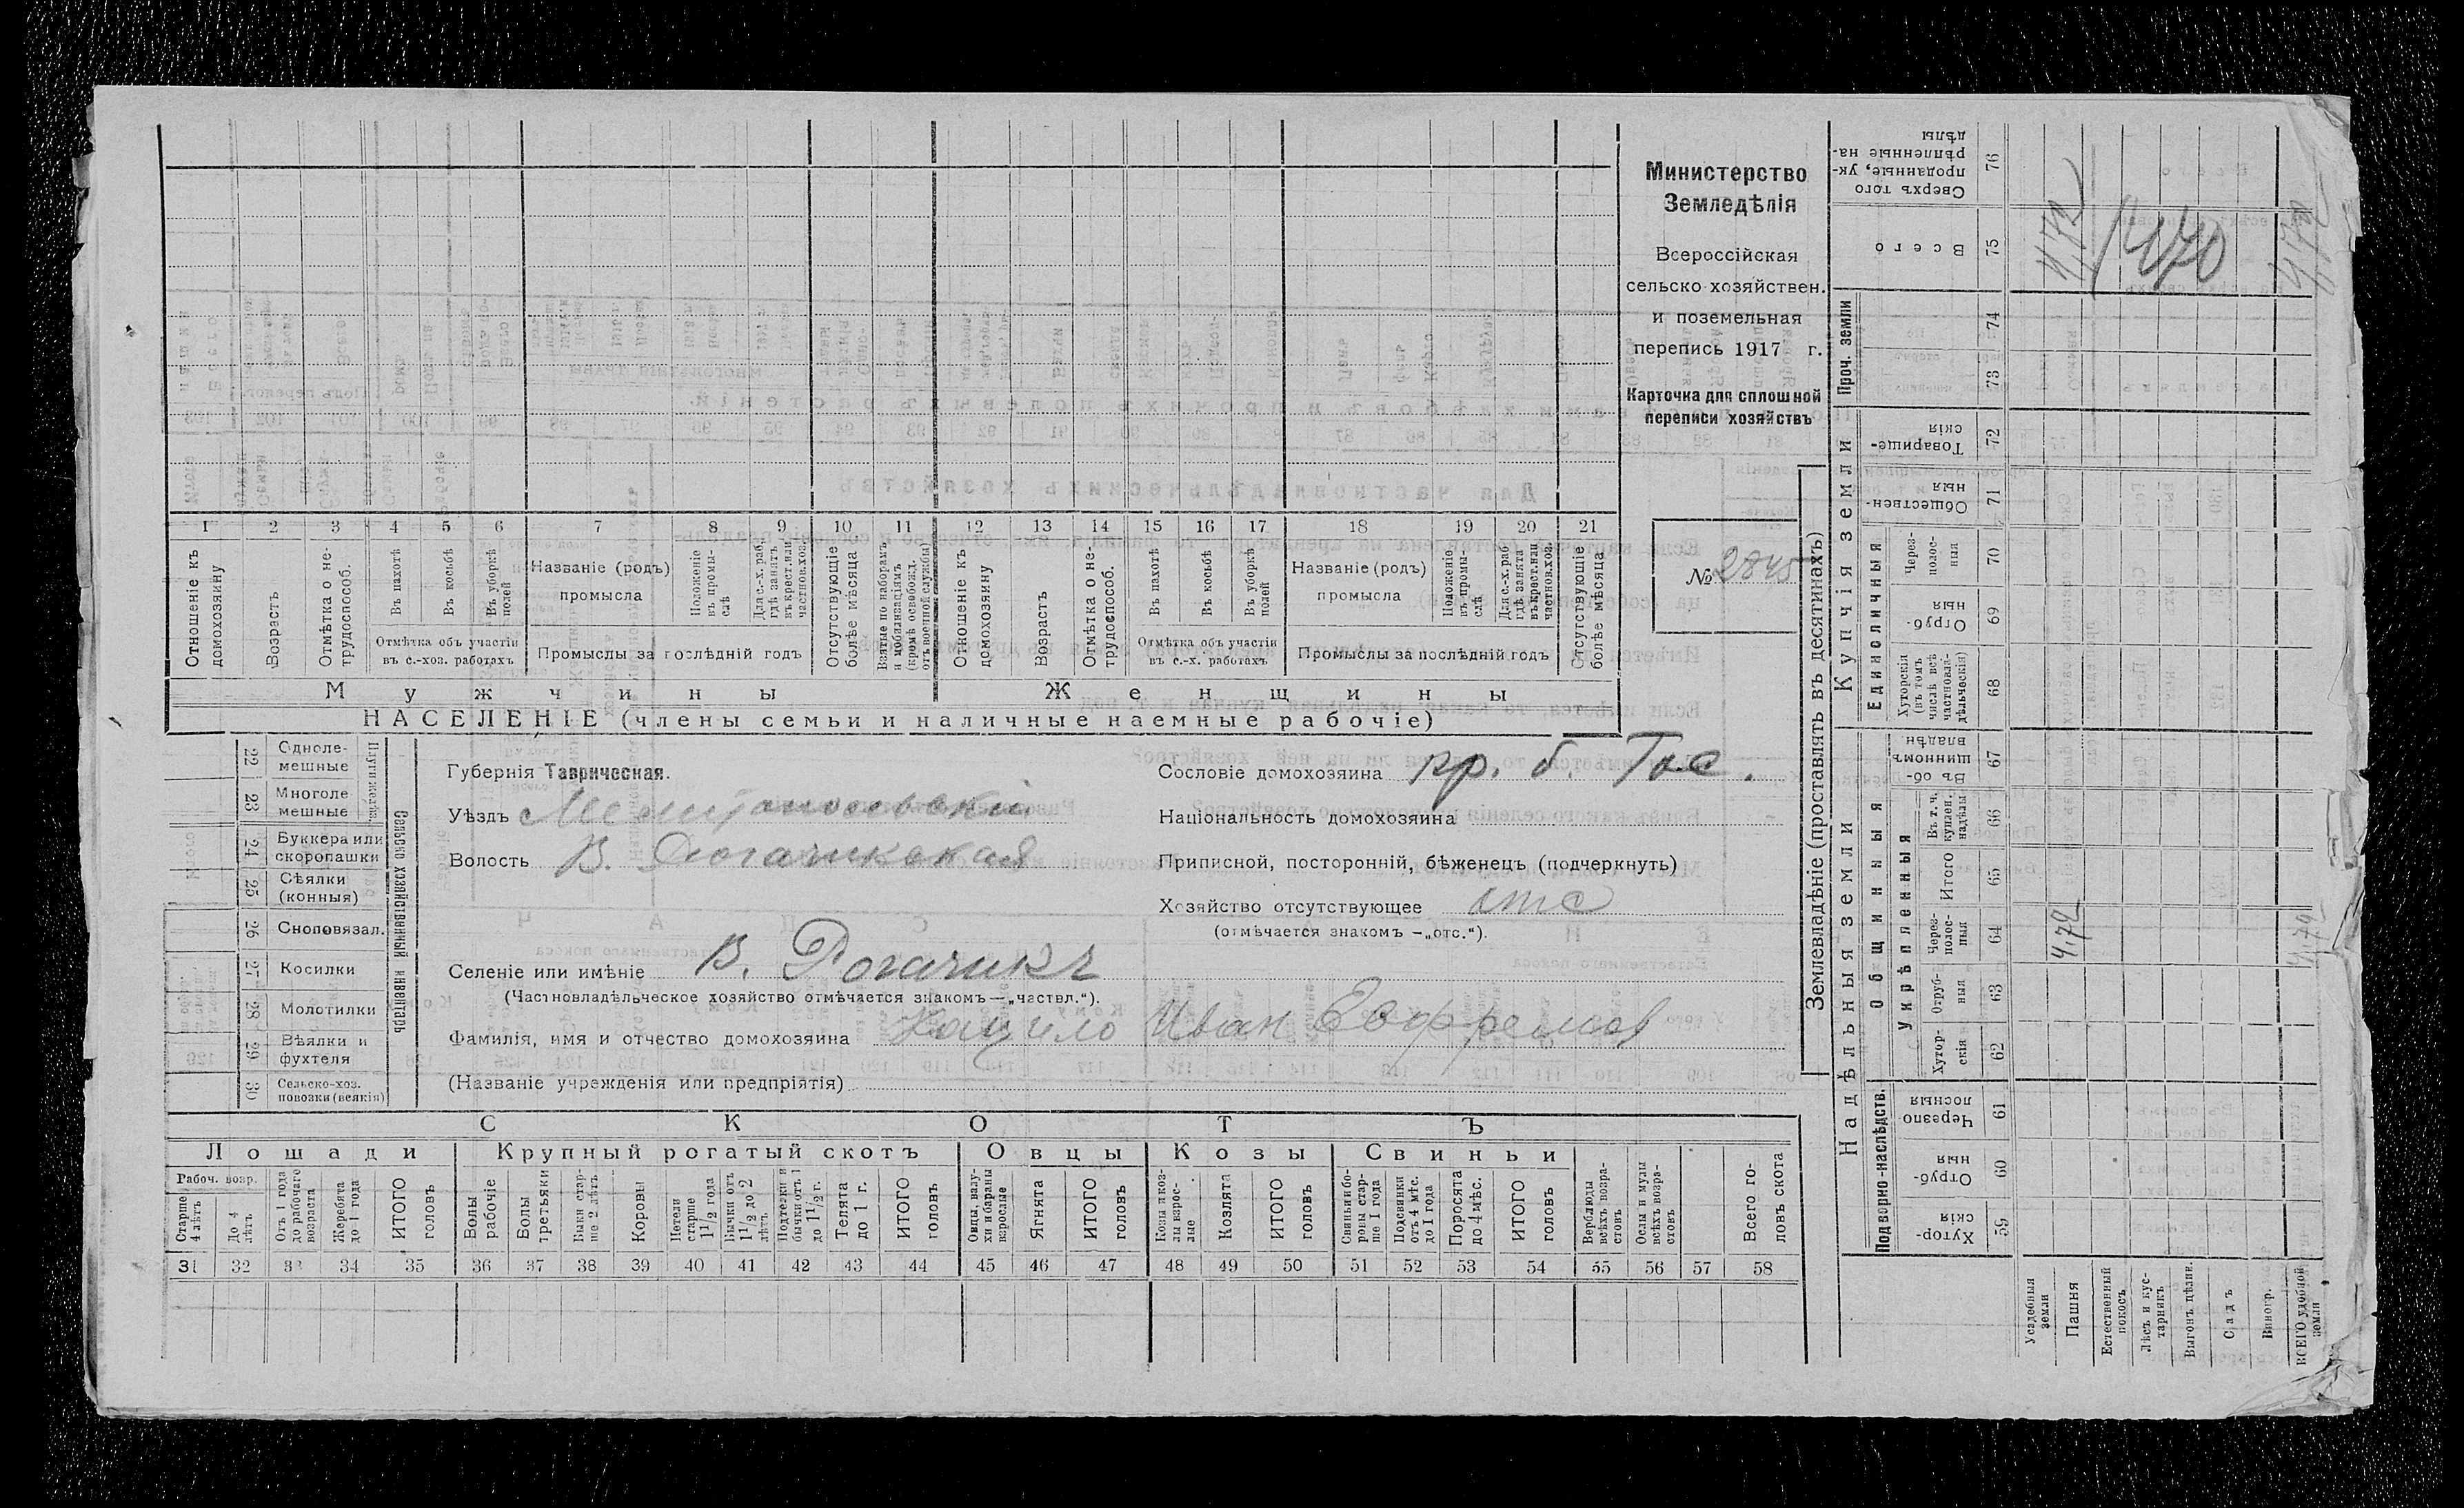 Министерство
Земледѣлія
Всероссійская
сельско-хозяйствен.
и поземельная
перепись 1917 г.
Карточка для сплошной
переписи хозяйствъ
№ 2845
1 2 3 4 5 6 7 8 9 10 11 12 13 14 15 16 17 18 19 20 21
Отношеніе къ домохозяину
Возрастъ
Отмѣтка о не-трудоспособ.
Въ пахотѣ
Въ косьбѣ
Въ уборкѣ полей
Отмѣтка объ участіи въ с.-хоз. работахъ
Названіе (родъ) промысла
Положеніе въ промы-слѣ
Для с.-х. раб. гдѣ занятъ въ крест. или частнов. хоз.
Промыслы за послѣдній годъ
Отсутствующіе болѣе мѣсяца
Взятые по наборамъ и мобилизаціямъ (кромѣ освобожд. отъ военной службы)
Отношеніе къ домохозяину
Возрастъ
Отмѣтка о не-трудоспособ.
Въ пахотѣ
Въ косьбѣ
Въ уборкѣ полей
Отмѣтка объ участіи въ с.-х. работахъ
Названіе (родъ) промысла
Положеніе въ промы-слѣ
Для с.-х. раб. гдѣ занята въ крест. или частнов. хоз.
Промыслы за послѣдній годъ
Отсутствующіе болѣе мѣсяца
Мужчины
Женщины
НАСЕЛЕНІЕ (члены семьи и наличные наемные рабочіе)
22 Одноле-мешные
23 Многоле мешные
Плуги желѣз.
24 Буккера или скоропашки
25 Сѣялки (конныя)
26 Сноповязал.
27 Косилки
28 Молотилки
29 Вѣялки и фухтеля
30 Сельско-хоз. повозки (всякія)
Сельско хозяйственный инвентарь
Губернія Таврическая.
Уѣздъ Мелитопольскій
Волость В. Рогачикская
Сословіе домохозяина кр. б. Гос.
Національность домохозяина
Приписной, посторонній, бѣженецъ (подчеркнуть)
Хозяйство отсутствующее отс
(отмѣчается знакомъ —„отс.“).
Селеніе или имѣніе В. Рогачикъ
(Частновладѣльческое хозяйство отмѣчается знакомъ—„частвл.“).
Фамилія, имя и отчество домохозяина Кацело Иван Евфремов
(Названіе учрежденія или предпріятія)
СКОТЪ
Лошади
Крупный рогатый скотъ
Овцы
Козы
Свиньи
Рабоч. возр.
Старше 4 лѣтъ
До 4 лѣтъ
Отъ 1 года до рабочаго возраста
Жеребята до 1 года
ИТОГО головъ
Волы рабочіе
Волы третьяки
Быки стар-ше 2 лѣтъ
Коровы
Нетели старше 1 1/2 года
Бычки отъ 1 1/2 до 2 лѣтъ
Подтелки и бычки отъ 1 до 1 1/2 г.
Телята до 1 г.
ИТОГО головъ
Овцы, валу-хи и бараны взрослые
Ягнята
ИТОГО головъ
Козы и коз-лы взрос-лые
Козлята
ИТОГО головъ
Свиньи и бо-ровы стар-ше 1 года
Подсвинки отъ 4 мѣс. до 1 года
Поросята до 4 мѣс.
ИТОГО головъ
Верблюды всѣхъ возра-стовъ
Ослы и мулы всѣхъ возра-стовъ
Всего го-ловъ скота
31 32 33 34 35 36 37 38 39 40 41 42 43 44 45 46 47 48 49 50 51 52 53 54 55 56 57 58
Землевладѣніе (проставлять въ десятинахъ)
Купчія земли
Надѣльныя земли
Сверхъ того проданные, ук-рѣпленные на-дѣлы 76
Всего 75
4,72
4,70
Проч. земли
74
73
Товарище-скія 72
Обществен-ныя 71
Единоличныя
Через-полос-ныя 70
Отруб-ныя 69
Хуторскія (въ томъ числѣ всѣ частновла-дѣльческія) 68
Общинныя
Въ об-щинномъ владѣн 67
Укрѣпленныя
Въ т. ч. куплен. надѣлы 66
Итого 65
Через-полос-ныя 64
4,72
Отруб-ныя 63
Хутор-скія 62
Подворно-наслѣдств.
Черезпо лосныя 61
Отруб-ныя 60
Хутор-скія 59
Усадебныя земли
Пашня
Естественный покосъ
Лѣсъ и кус-тарникъ
Выгонъ цѣлин.
Садъ
Виногр.
ВСЕГО удобной земли